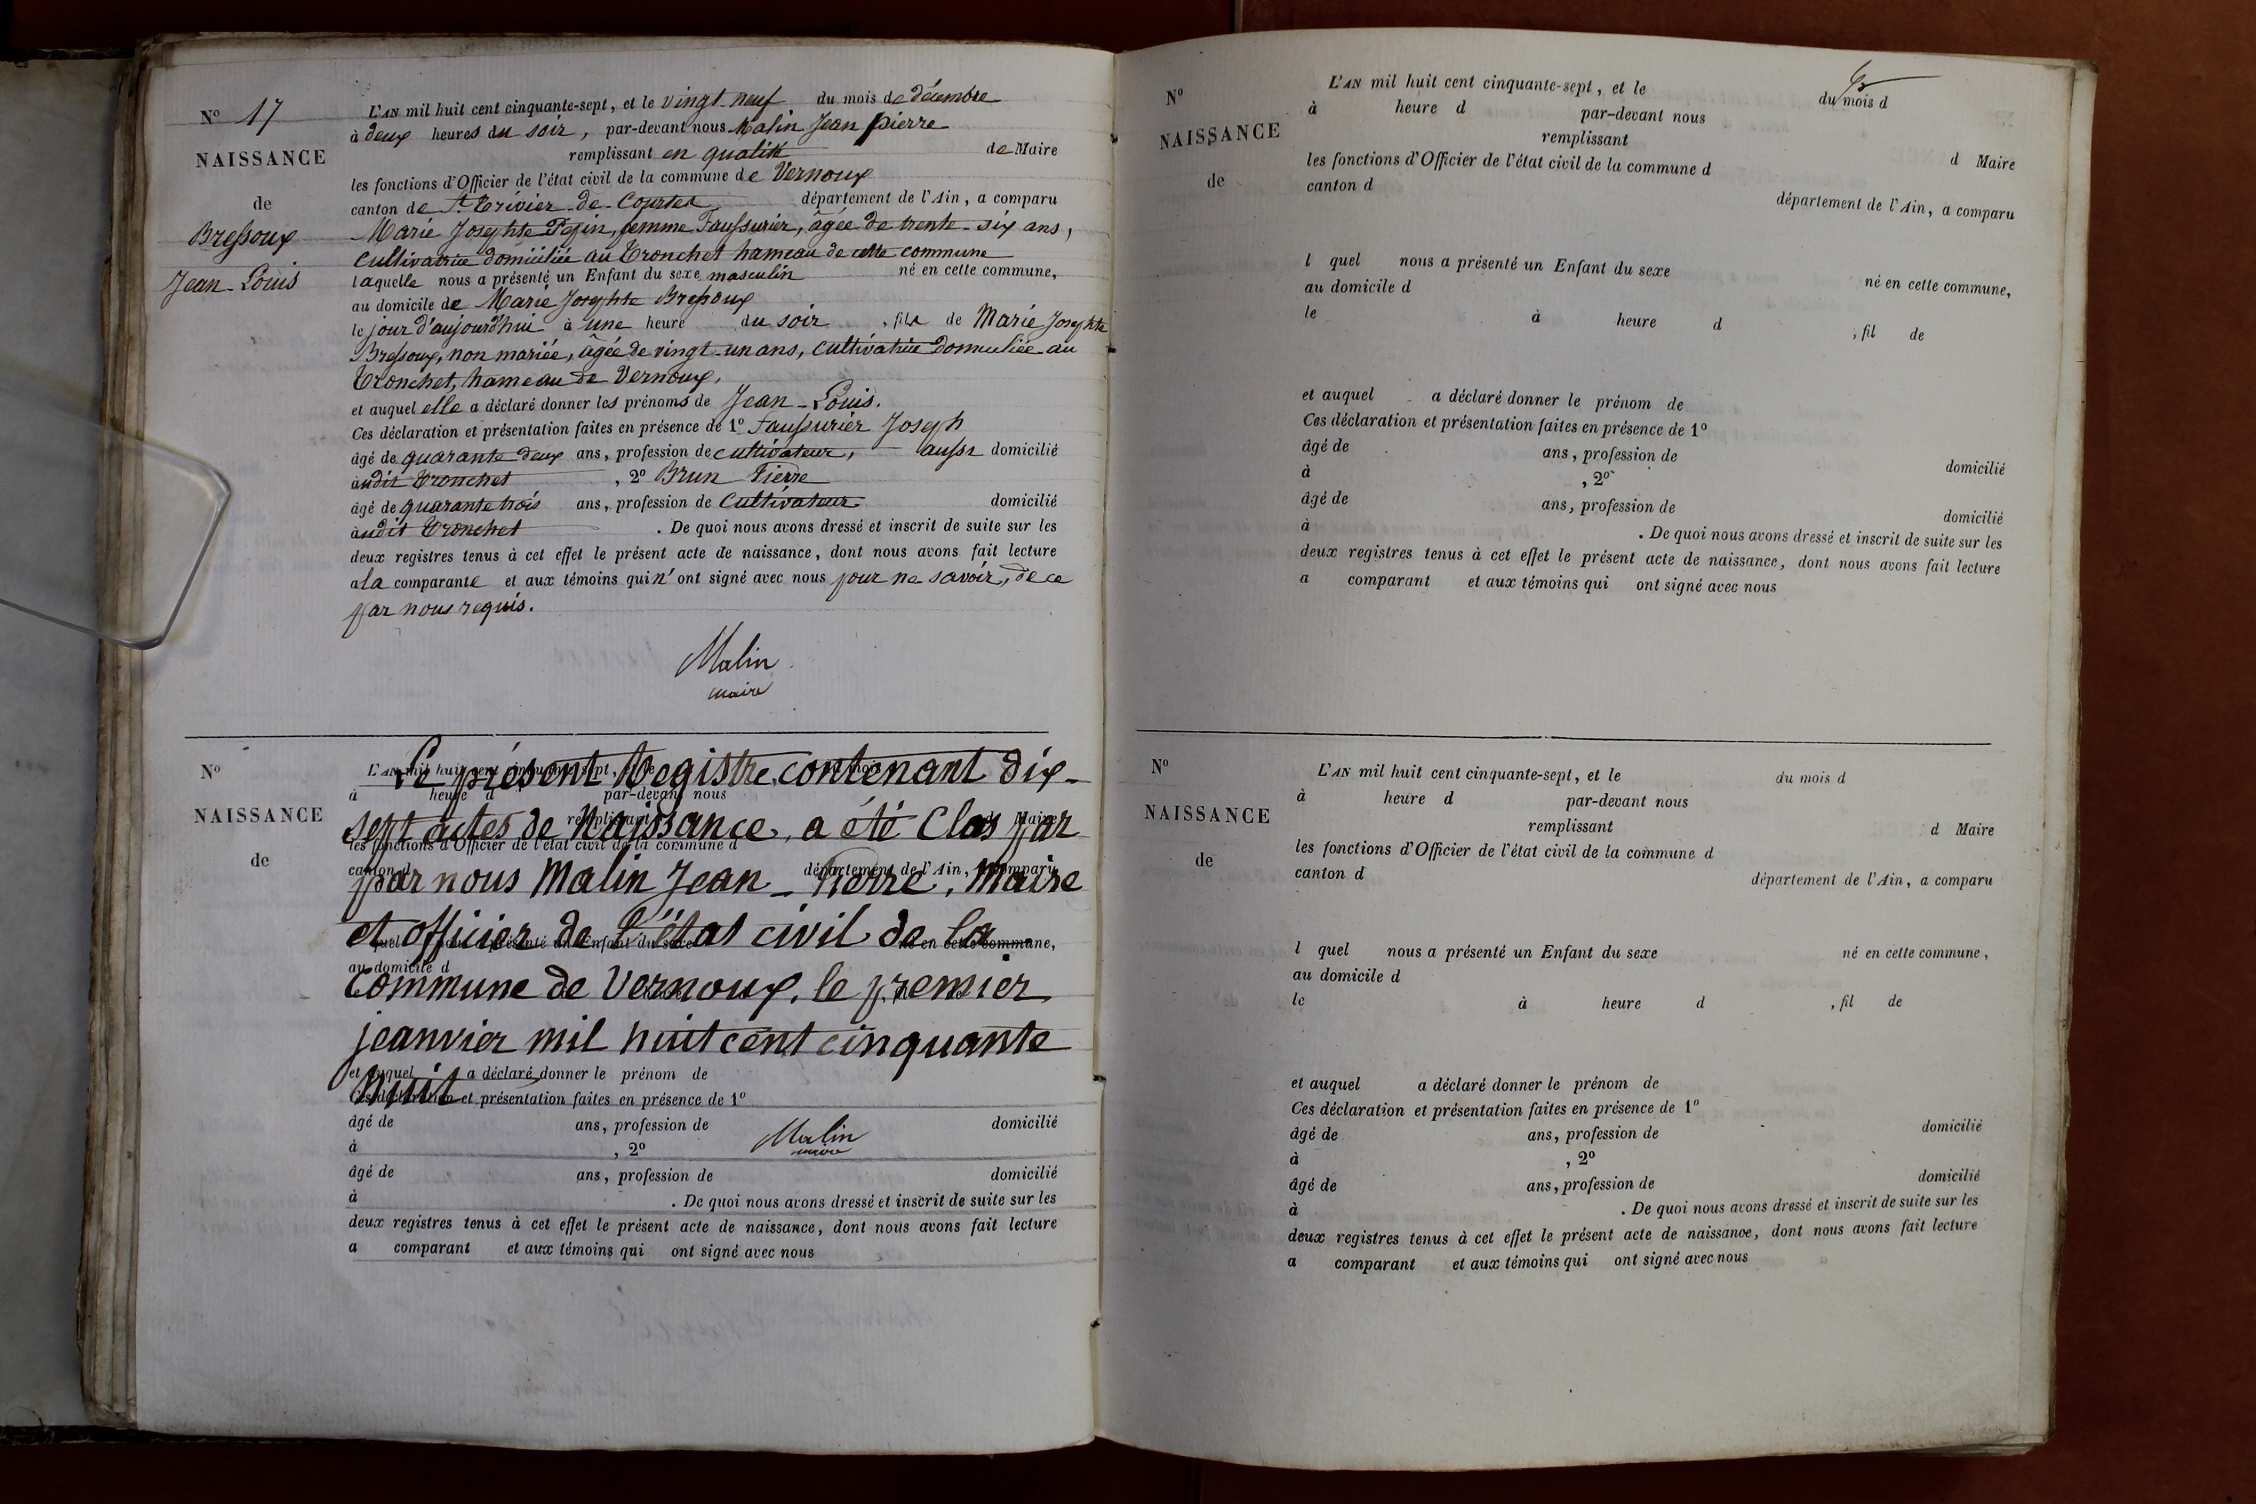 N° 17
NAISSANCE
de
Bressoux
Jean-Louis
L'AN mil huit cent cinquante-sept, et le vingt-neuf du mois de décembre
à deux heures du soir, par-devant nous Malin Jean Pierre
remplissant en qualité de Maire
les fonctions d'Officier de l'état civil de la commune de Vernoux
canton de St Trivier-de-Courtes département de l'Ain, a comparu
Marie Josephte femme Faussurier, âgée de trente-six ans,
cultivatrice domiciliée au Tronchet hameau de cette commune
laquelle nous a présenté un Enfant du sexe masculin né en cette commune,
au domicile de Marie Josephte Bressoux
le jour d'aujourd'hui à une heure du soir, fils de Marie Josephte
Bressoux, non mariée, âgée de vingt-un ans, cultivatrice domiciliée au
Tronchet, hameau de Vernoux.
et auquel elle a déclaré donner les prénoms de Jean-Louis.
Ces déclaration et présentation faites en présence de 1° Faussurier Joseph
âgé de quarante deux ans, profession de cultivateur, aussi domicilié
audit Tronchet, 2° Brun Pierre
âgé de quarante trois ans, profession de cultivateur domicilié
audit Tronchet. De quoi nous avons dressé et inscrit de suite sur les
deux registres tenus à cet effet le présent acte de naissance, dont nous avons fait lecture
a la comparante et aux témoins qui n'ont signé avec nous pour ne savoir, de ce
par nous requis.
Malin
maire
N°
NAISSANCE
de
Le présent Registre contenant dix-
sept actes de Naissance, a été Clos par
par nous Malin Jean-Pierre, Maire
et officier de l'état civil de la
commune de Vernoux, le premier
jeanvier mil huit cent cinquante
huit
et auquel a déclaré donner le prénom de
Ces déclaration et présentation faites en présence de 1°
âgé de ans, profession de domicilié
à , 2°
Malin
maire
âgé de ans, profession de domicilié
à . De quoi nous avons dressé et inscrit de suite sur les
deux registres tenus à cet effet le présent acte de naissance, dont nous avons fait lecture
a comparant et aux témoins qui ont signé avec nous
N°
NAISSANCE
de
L'AN mil huit cent cinquante-sept, et le du mois d
à heure d par-devant nous
remplissant d Maire
les fonctions d'Officier de l'état civil de la commune d
canton d département de l'Ain, a comparu
l quel nous a présenté un Enfant du sexe né en cette commune,
au domicile d
le à heure d , fil de
et auquel a déclaré donner le prénom de
Ces déclaration et présentation faites en présence de 1°
âgé de ans, profession de domicilié
à , 2°
âgé de ans, profession de domicilié
à . De quoi nous avons dressé et inscrit de suite sur les
deux registres tenus à cet effet le présent acte de naissance, dont nous avons fait lecture
a comparant et aux témoins qui ont signé avec nous
N°
NAISSANCE
de
L'AN mil huit cent cinquante-sept, et le du mois d
à heure d par-devant nous
remplissant d Maire
les fonctions d'Officier de l'état civil de la commune d
canton d département de l'Ain, a comparu
l quel nous a présenté un Enfant du sexe né en cette commune,
au domicile d
le à heure d , fil de
et auquel a déclaré donner le prénom de
Ces déclaration et présentation faites en présence de 1°
âgé de ans, profession de domicilié
à , 2°
âgé de ans, profession de domicilié
à . De quoi nous avons dressé et inscrit de suite sur les
deux registres tenus à cet effet le présent acte de naissance, dont nous avons fait lecture
a comparant et aux témoins qui ont signé avec nous